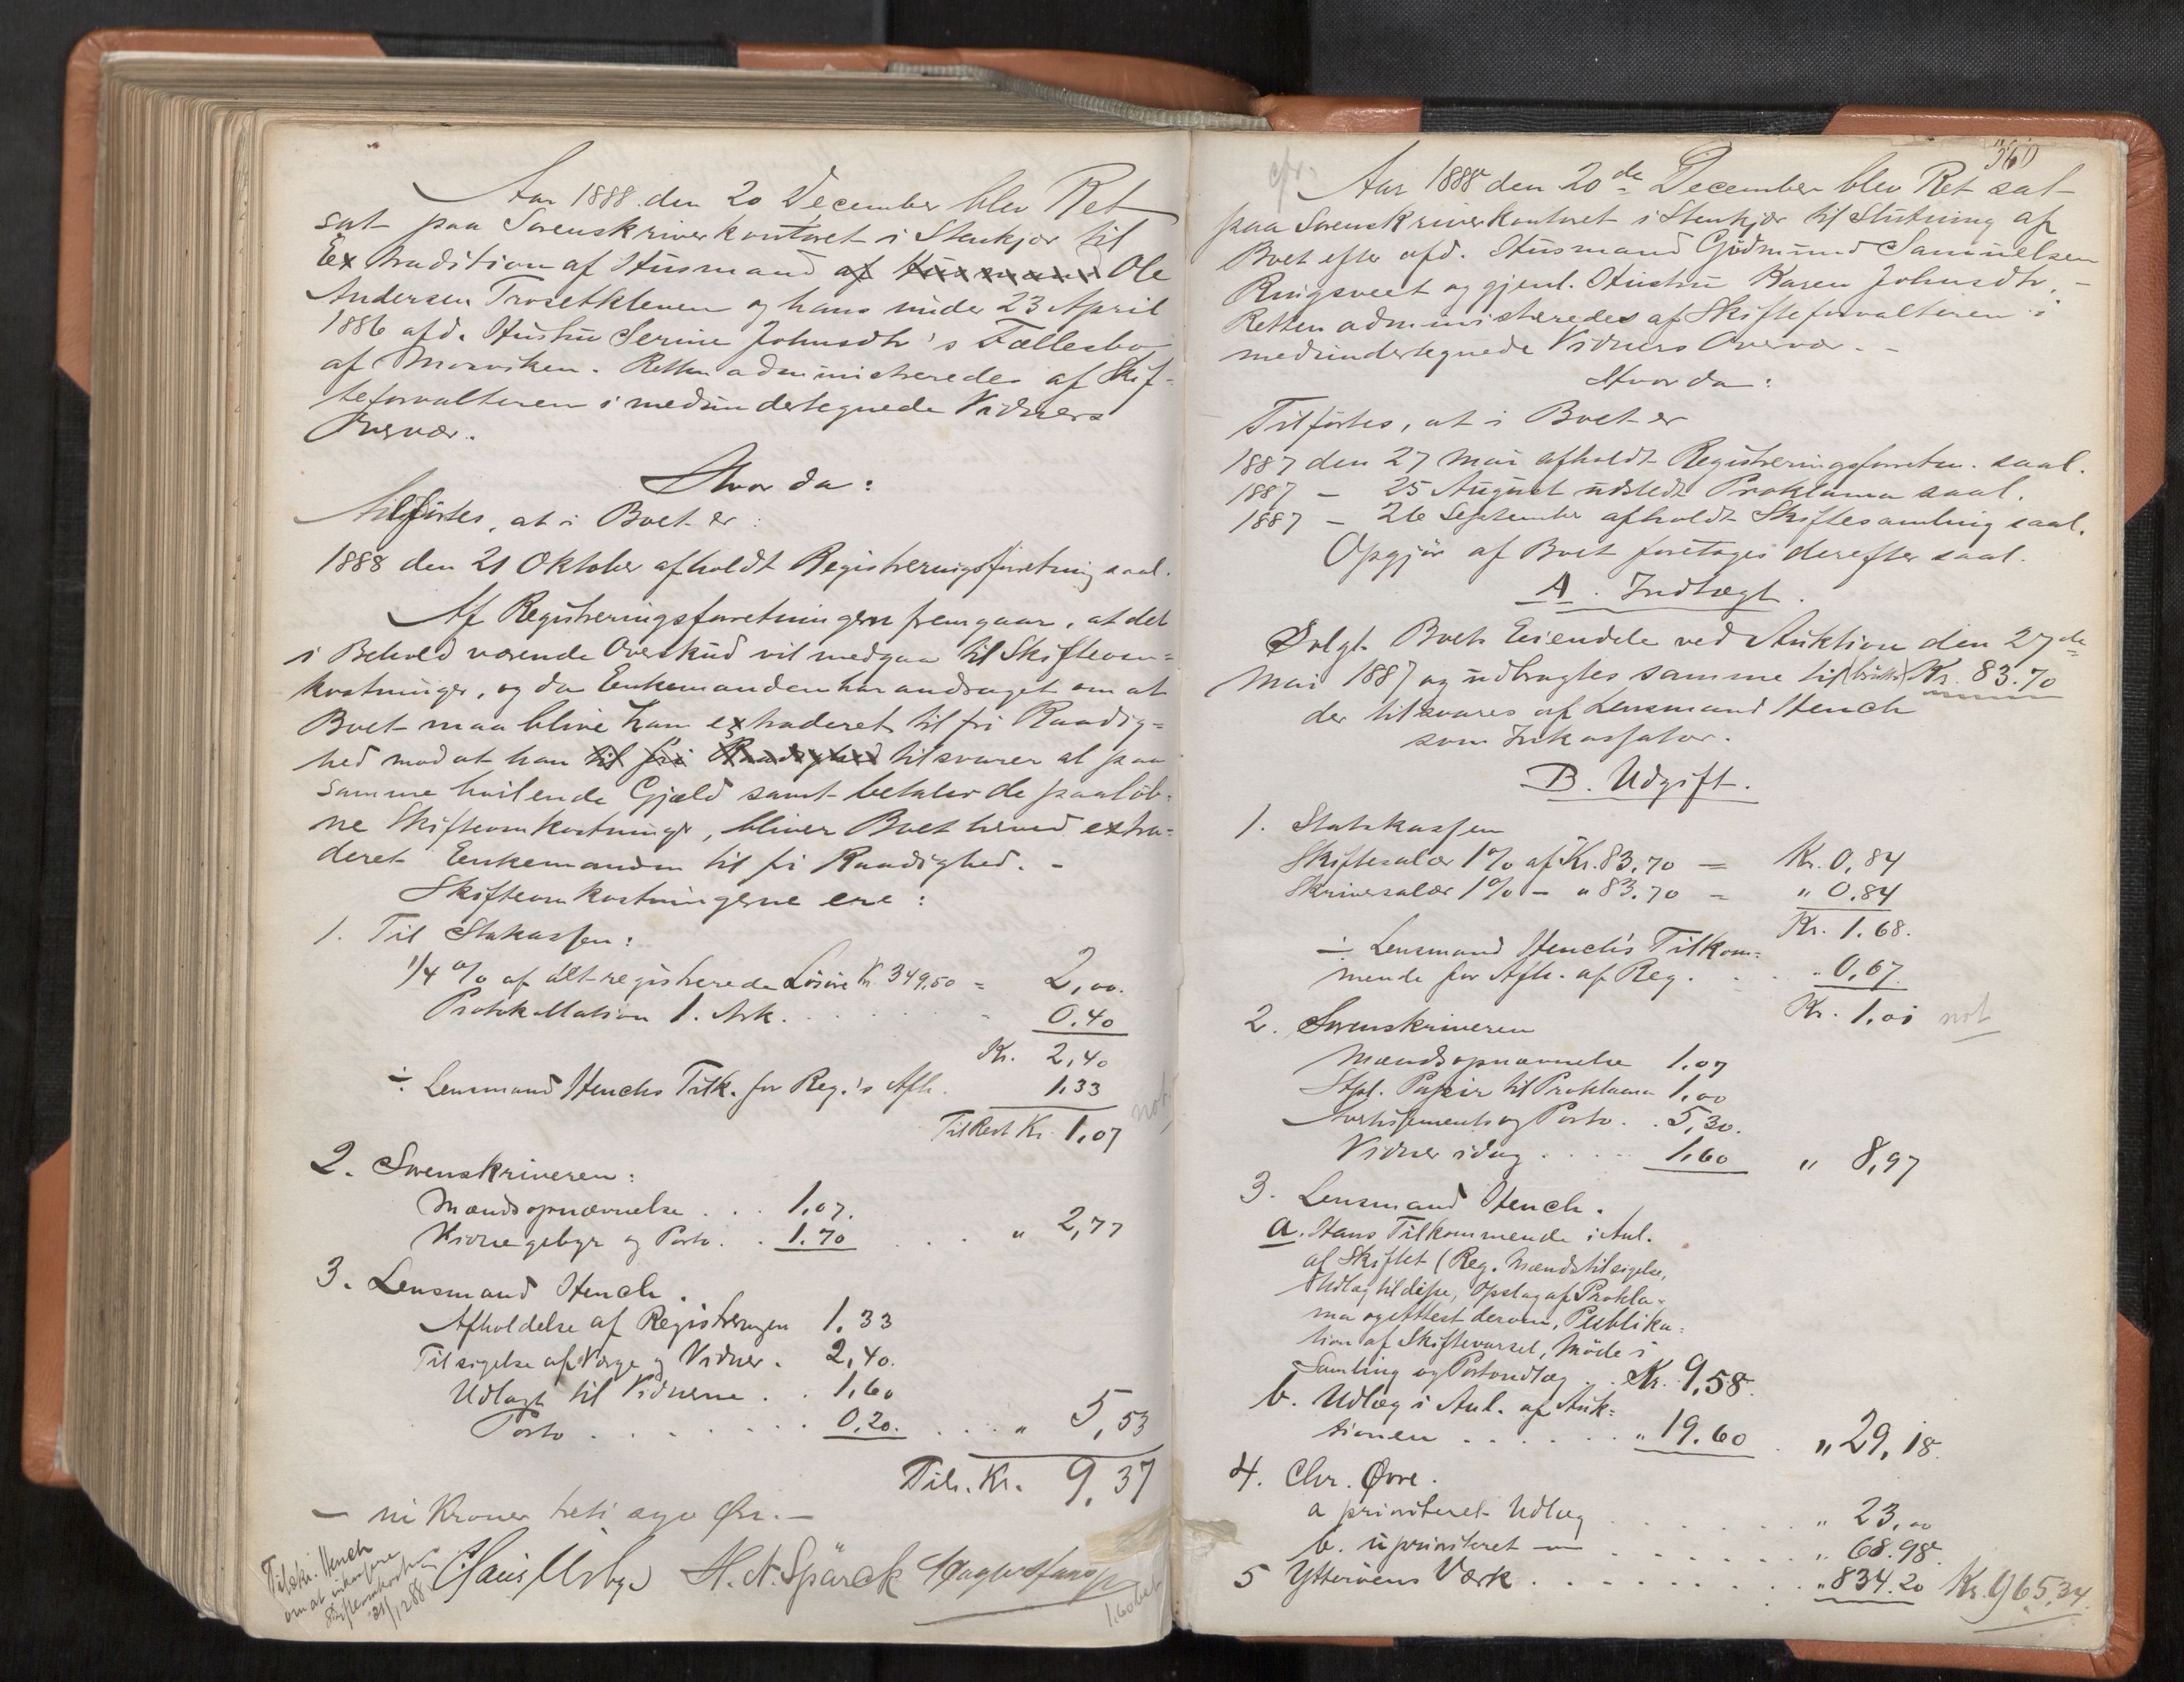 Aar 1888 den 20 December blev Ret
sat paa Sorenskriverkontoret i Stenkjær til
Extradition af Husmand af Husmand Ole
Andersen Trosetkleven og hans under 23 April
1886 afd. Hustru Serine Johnsdtr's Fællesbo
af Mosviken. Retten administreredes af Skif-
teforvalteren i medundertegnede Vidners
Overvær.
Hvorda:
Tilførtes, at i Boet er:
1888 den 21 Oktober afholdt Registreringsforretning saal.
Af Registreringsforretningen fremgaar, at det
i Behold værende Overskud vil medgaa til Skifteom=
kostninger, og da Enkemanden har andraget om at
Boet maa blive ham extraderet til fri Raadig=
hed mod at han til fri Raadighed tilsvarer al paa
samme hvilende Gjæld samt betaler de paaløb=
ne Skifteomkostninger, bliver Boet herved extra=
deret Enkemanden til fri Raadighed. -
Skifteomkostningerne ere:
1. Til Statskassen:
1/4 % af alt registrerede Løsøre Kr. 349,50 = 2,00.
Protokollation 1. Ark. 0.40
Kr. 2,40
÷ Lensmand Henchs Tilk. for Reg.'s Afh. 1.33
Til Rest Kr. 1,07 not.
2. Sorenskriveren:
Mændsopnævnelse . . . 1.07.
Vidnegebyr og Porto. . 1.70 . . . " 2,77
3. Lensmand Hench.
Afholdelse af Registreringen 1.33
Tilsigelse af Værge og Vidner. 2,40.
Udlagt til Vidnerne . . 1,60
Porto . . . . . . . 0.20. . . . " 5,53
Tils. Kr. 9,37
– ni Kroner treti syv Øre. –
Tilskr. Hench
om at inkassere
Skifteomkostn.
21/12 88
H. N. Spärck
1.60 bet
cfr. 360
Aar 1888 den 20de December blev Ret sat
paa Sorenskriverkontoret i Stenkjær til Slutning af
Boet efter afd. Husmand Gudmund Samuelsen
Ringsveet og gjenl. Hustru Karen Johnsdtr. -
Retten administreredes af Skifteforvalteren i
medundertegnede Vidners Overvær. -
Hvorda:
Tilførtes, at i Boet er
1887 den 27 Mai afholdt Registreringsforretn. saal.
1887 – 25 August udstedt Proklama saal.
1887 – 26 September afholdt Skiftesamling saal.
Opgjør af Boet foretoges derefter saal.
A. Indtægt.
Solgt Boets Eiendele ved Auktion den 27de
Mai 1887 og udbragtes samme til (brutto) Kr. 83.70
der tilsvares af Lensmand Hench
som Inkassator.
B. Udgift.
1. Statskassen
Skiftesalær 1% af Kr. 83.70 = Kr. 0,84
Skriversalær 1% – " 83.70 = " 0.84
Kr. 1.68.
÷ Lensmand Hench's Tilkom=
mende for Afh. af Reg. . . " 0,67.
Kr. 1.01 not
2. Sorenskriveren
Mændsopnævnelse 1.07
Stpl. Papir til Proklama 1,00
Avertissements og Porto. . 5,30.
Vidner idag . . . . 1,60 " 8,97
3. Lensmand Hench.
a. Hans Tilkommende i Anl.
af Skiftet (Reg. Mændstilsigelse,
Udlæg til disse, Opslag af Prokla-
ma og Attest derom, Publika=
tion af Skiftevarsel, Møde i
Samling og Portoudlæg . . Kr. 9,58.
b. Udlæg i Anl. af Auk=
tionen . . . . . . " 19.60 . " 29,18.
4. Chr. Øvre.
a prioriteret Udlæg . . . . . " 23,00
b. uprioriteret — . . . . . " 68.98.
5 Ytterøens Værk . . . . . . . " 834.20 Kr. 965,34.